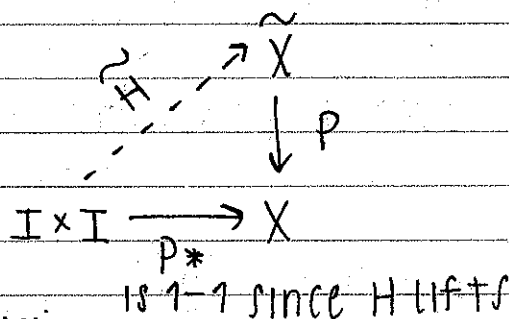 X̃
H̃
P
I × I → X
P*
is 1-1 since H lifts